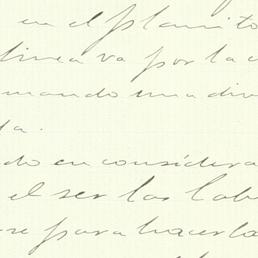 en el planito
linea va por la
mando una div
ta.
do en considera
el ser las lab
re para hacerla